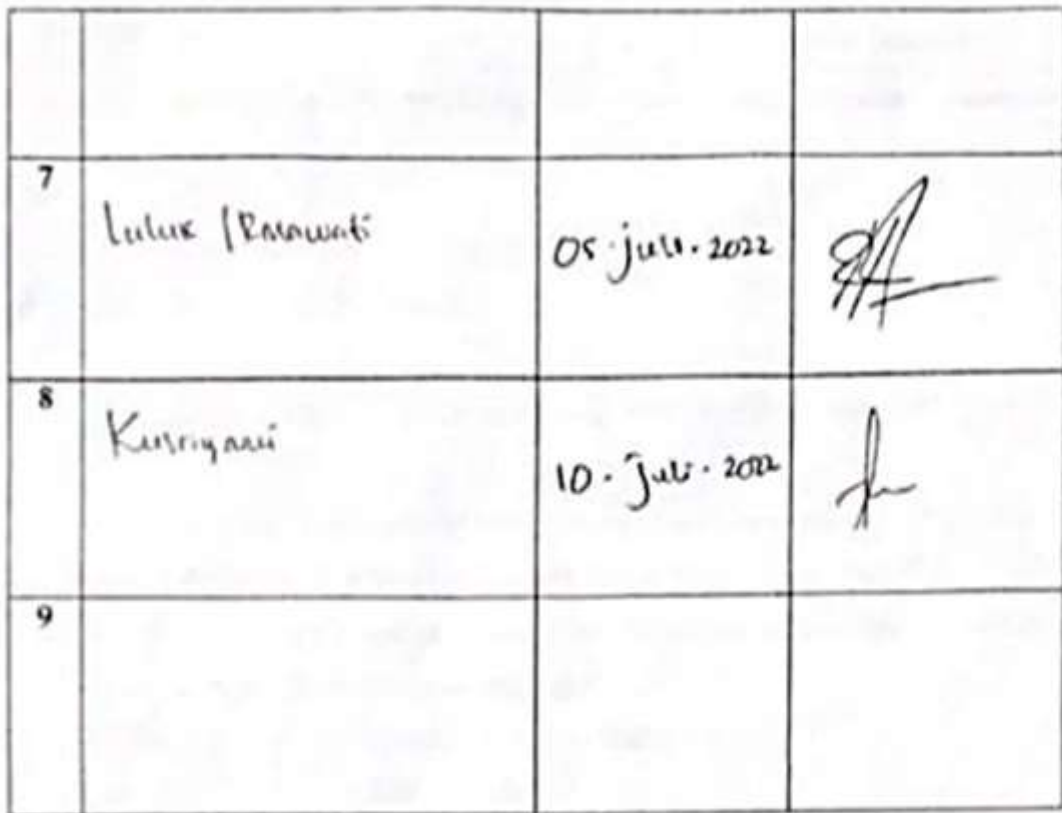 7
Luluk
05 · Juli · 2022
8
Kusriyani
10 · Juli · 2022
9